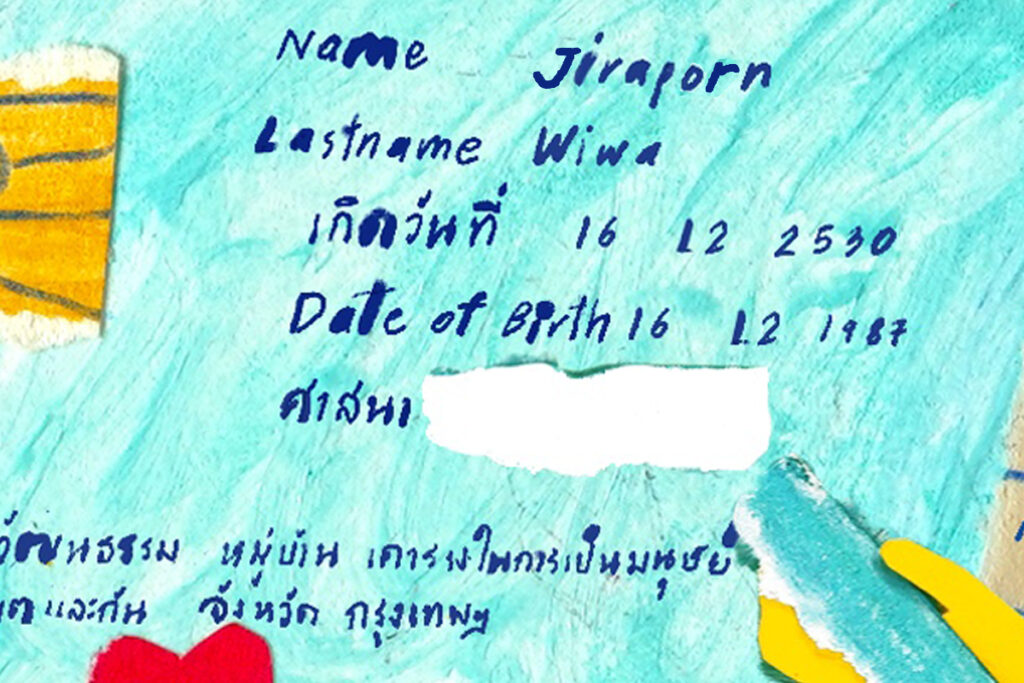 Name Jiraporn
Lastname Wiwa
เกิดวันที่ 16 12 2530
Date of Birth 16 12 1987
ศาสนา
วัฒนธรรม หมู่บ้าน เคารพในการเป็นมนุษย์
และกัน จังหวัด กรุงเทพฯ